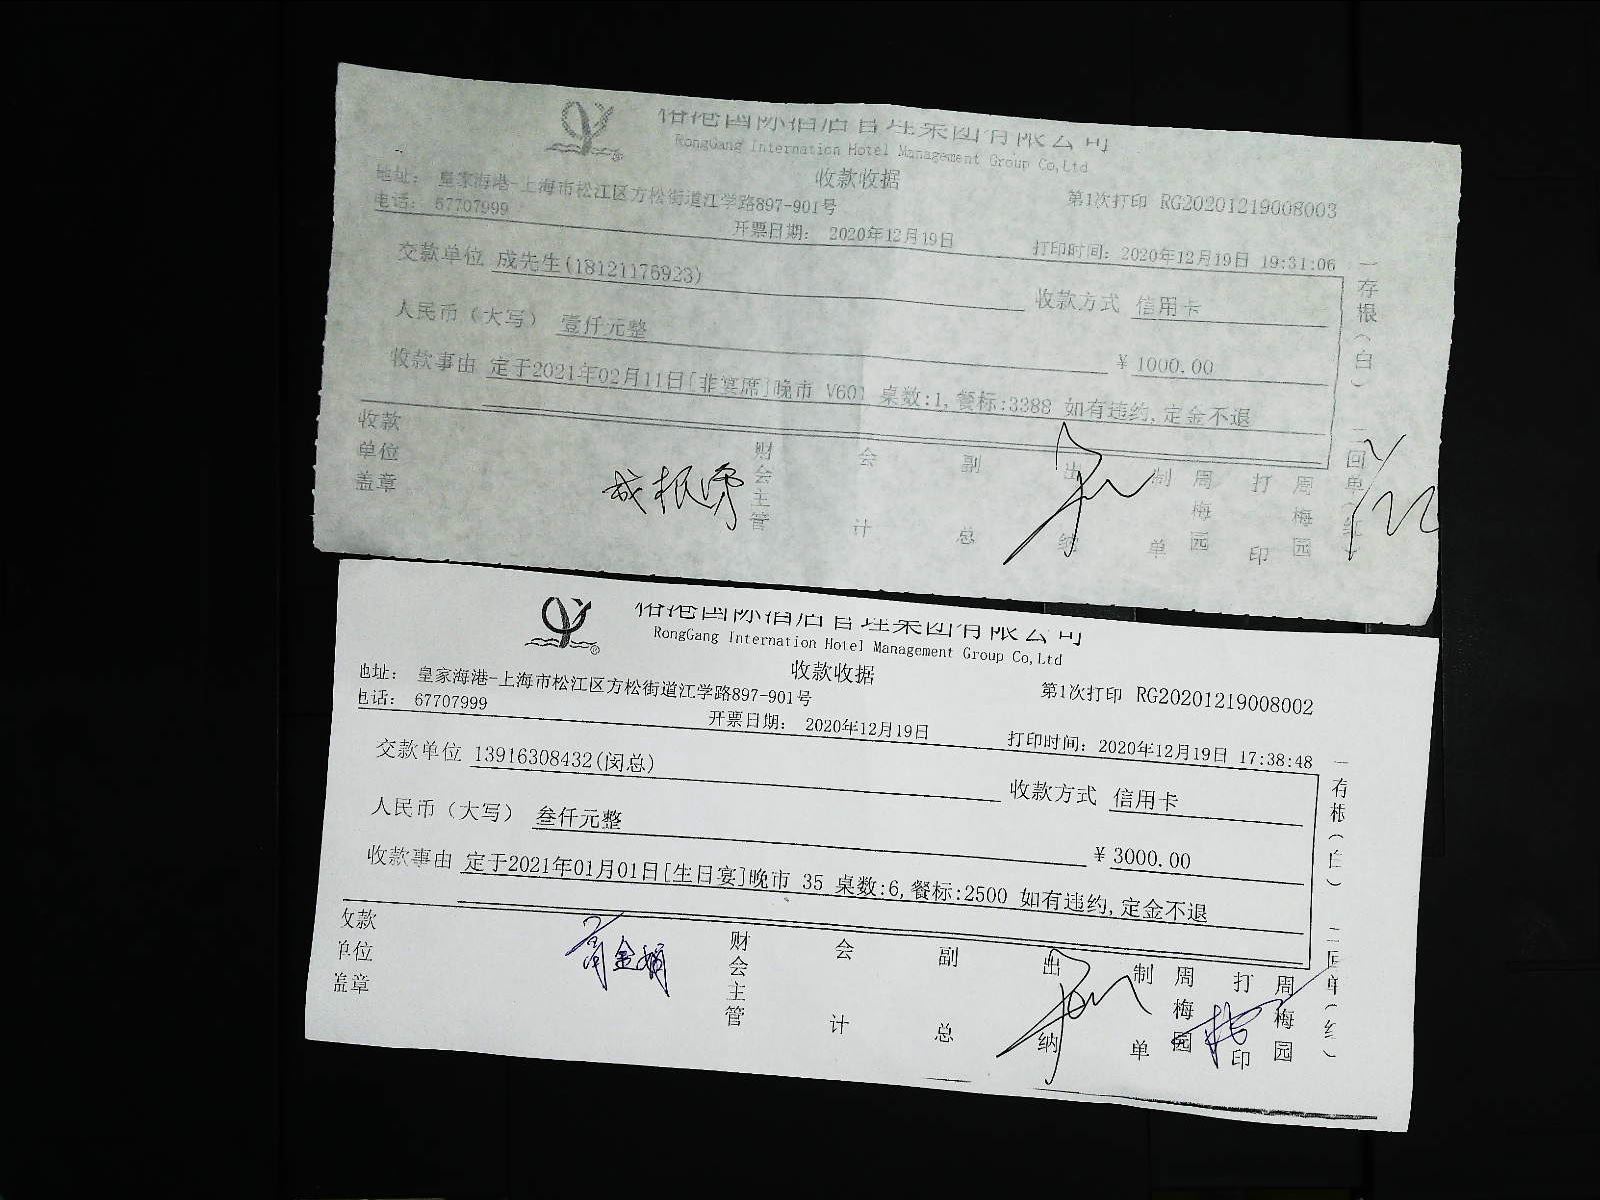 港国际酒店管理集团有限公司
RongGang Internation Hotel Management Group Co,Ltd
收款收据
地址: 皇家海港-上海市松江区方松街道江学路897-901号
第1次打印 RG20201219008003
电话: 67707999
开票日期: 2020年12月19日
打印时间: 2020年12月19日 19:31:06
交款单位 成先生(18121176923)
收款方式 信用卡
人民币(大写) 壹仟元整
¥ 1000.00
收款事由 定于2021年02月11日[非宴席]晚市 V601 桌数:1,餐标:3388 如有违约,定金不退
一存根(白) 二回单(红)
收款单位盖章
财会主管
会计
副总
出纳
制单
周梅园
打印
周梅园
港国际酒店管理集团有限公司
RongGang Internation Hotel Management Group Co,Ltd
收款收据
地址: 皇家海港-上海市松江区方松街道江学路897-901号
第1次打印 RG20201219008002
电话: 67707999
开票日期: 2020年12月19日
打印时间: 2020年12月19日 17:38:48
交款单位 13916308432(闵总)
收款方式 信用卡
人民币(大写) 叁仟元整
¥ 3000.00
收款事由 定于2021年01月01日[生日宴]晚市 35 桌数:6,餐标:2500 如有违约,定金不退
一存根(白) 二回单(红)
收款单位盖章
财会主管
会计
副总
出纳
制单
周梅园
打印
周梅园